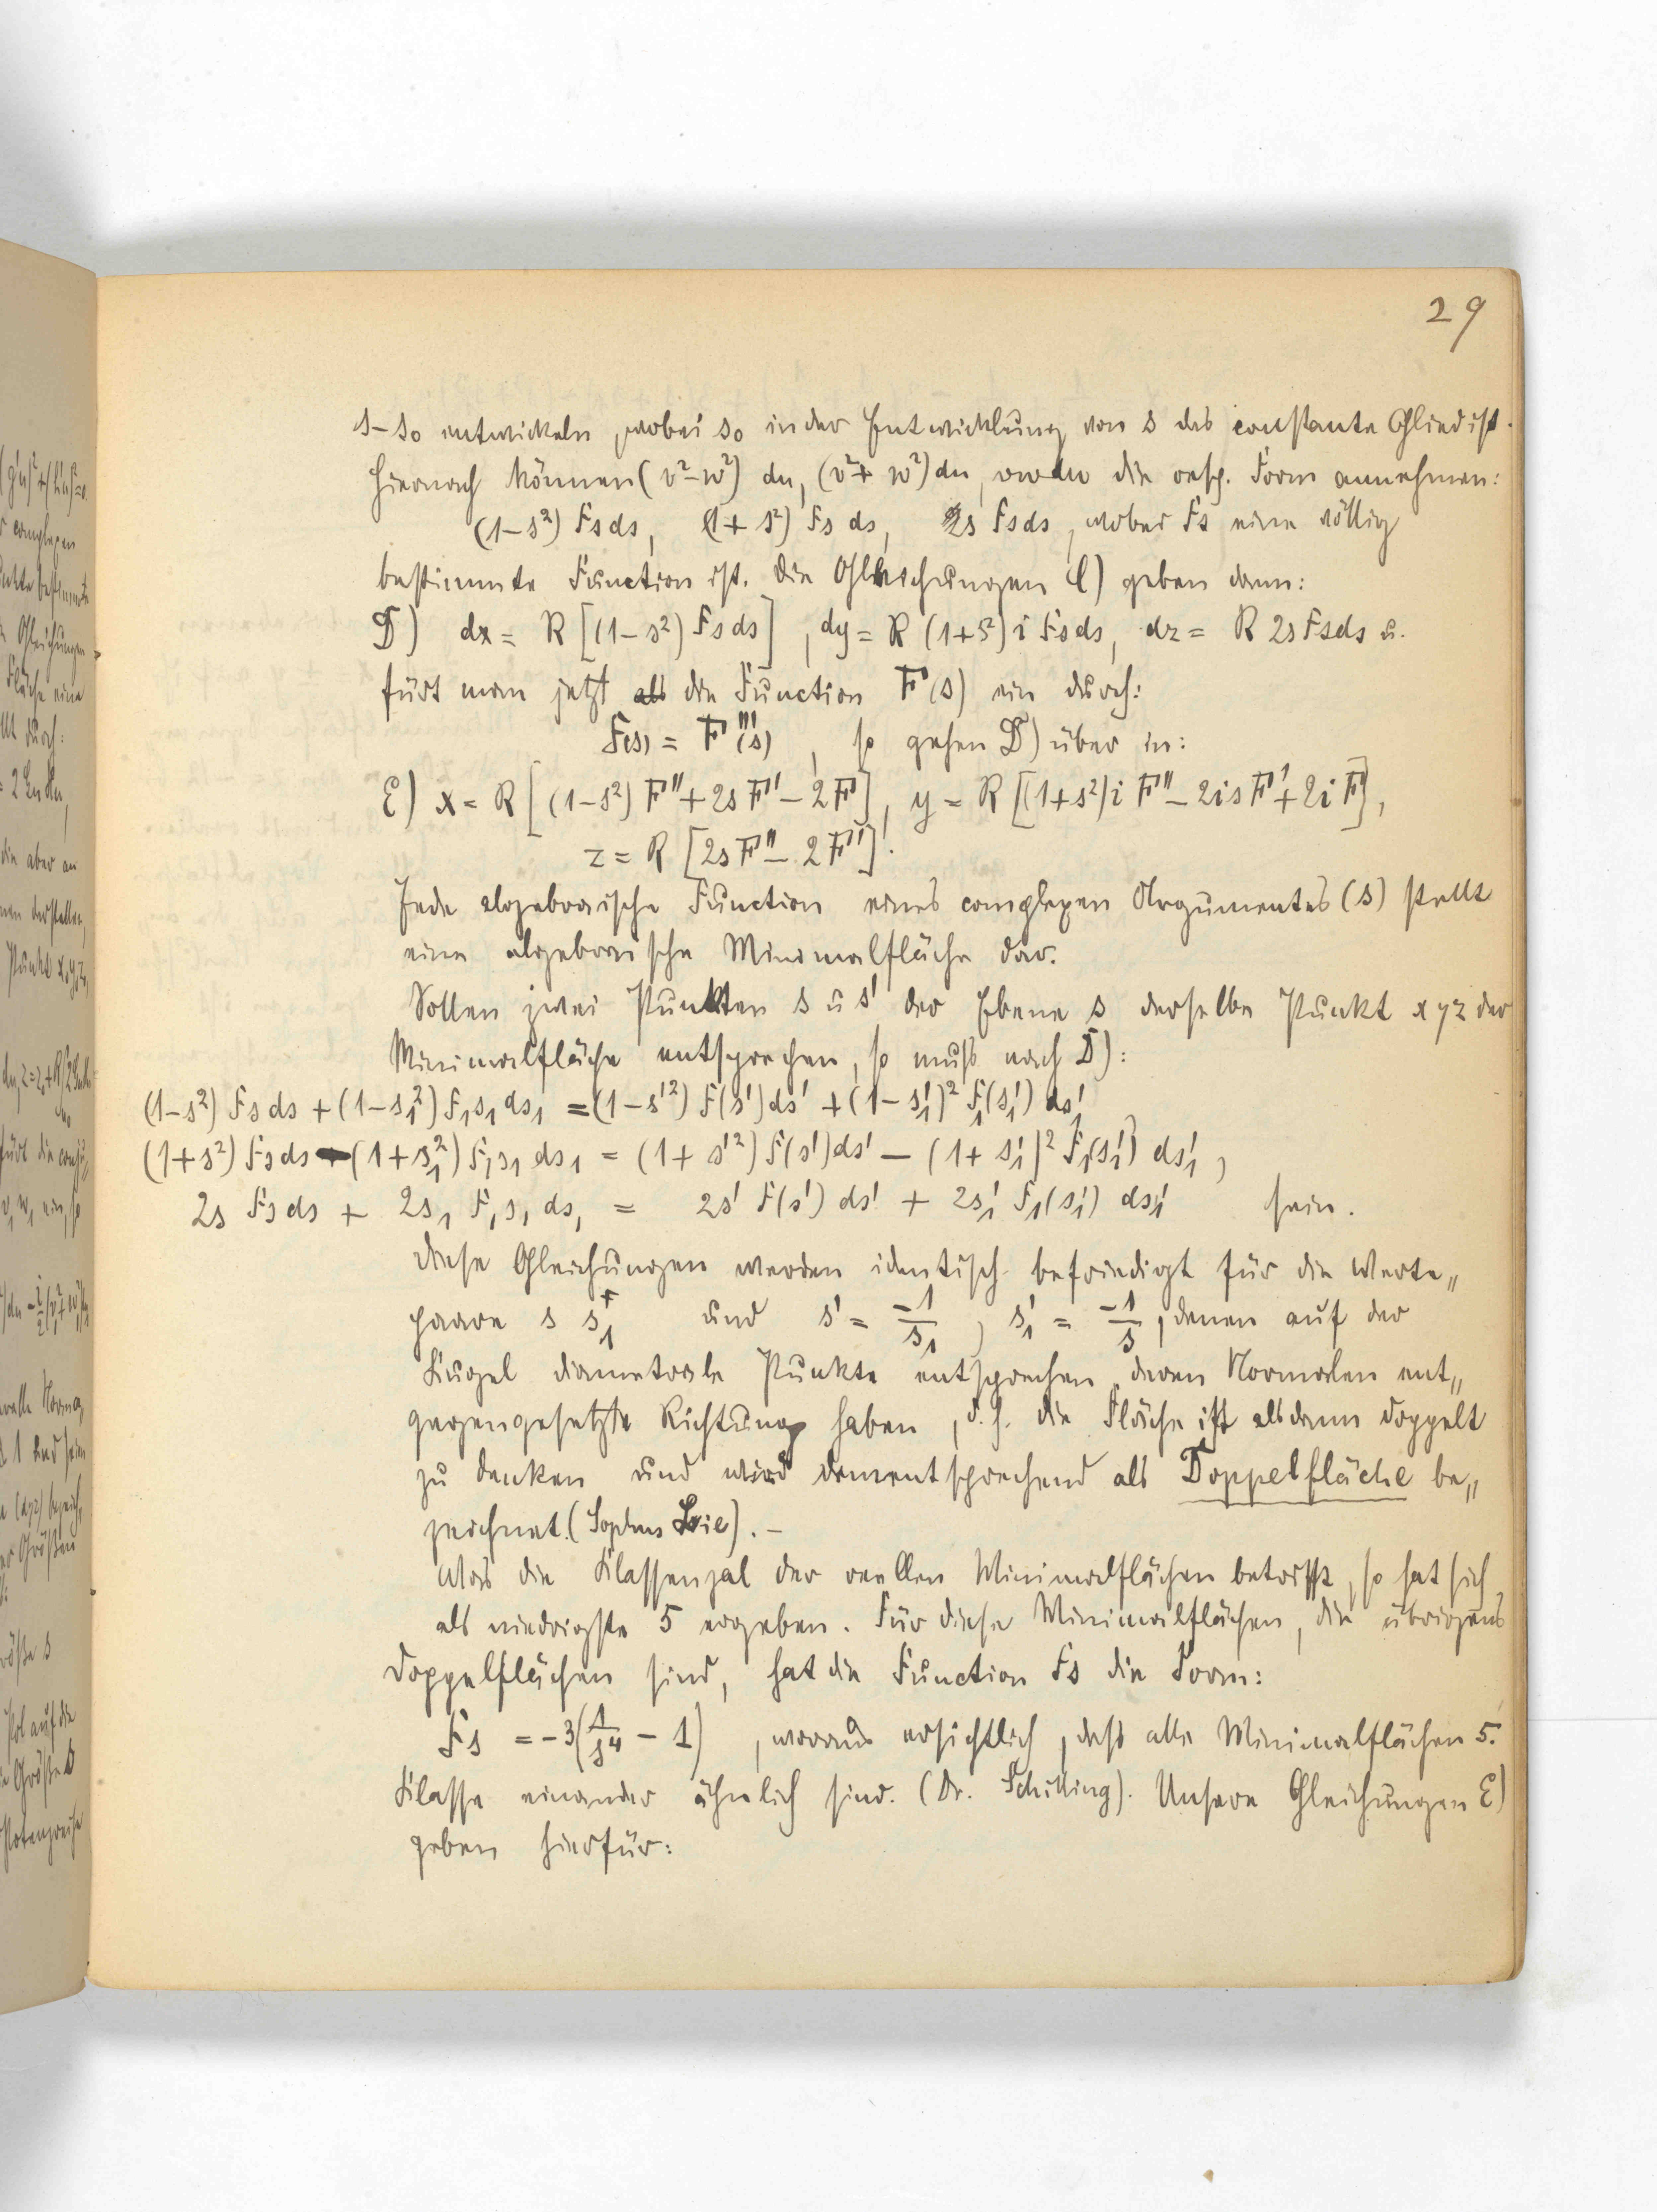 29
s-s₀ entwickeln, wobei s₀ in der Entwicklung von s das constante Glied ist.
Hiernach können (v²-w²) du, (v²+w²) du, vwdu die resp. Form annehmen:
(1-s²) Fs ds, (1+s²) Fs ds, 2s Fs ds, wobei Fs eine völlig
bestimmte Function ist. Die Gleichungen C) geben dann:
D) dx = R [(1-s²) Fs ds], dy = R (1+s²) i Fs ds, dz = R 2s Fs ds u.
fürt man jetzt die Function F(s) ein durch:
F(s) = F'''(s), so gehen D) über in:
E) x = R [(1-s²) F'' + 2s F' - 2F], y = R [(1+s²) i F'' - 2is F' + 2i F],
z = R [2s F'' - 2F'].
Jede algebraische Function eines complexen Argumentes (s) stellt
eine algebraische Minimalfläche dar.
Sollen zwei Punkten s u s' der Ebene s derselbe Punkt xyz der
Minimalfläche entsprechen, so muß nach D):
(1-s²) Fs ds + (1-s₁²) F₁s₁ ds₁ = (1-s'²) F(s') ds' + (1-s₁')² F₁(s₁') ds₁'
(1+s²) Fs ds - (1+s₁²) F₁s₁ ds₁ = (1+s'²) F(s') ds' - (1+s₁')² F₁(s₁') ds₁',
2s Fs ds + 2s₁ F₁s₁ ds₁ = 2s' F(s') ds' + 2s₁' F₁(s₁') ds₁' sein.
Diese Gleichungen werden identisch befriedigt für die Werte„
paare s s₁ und s' = -1/s₁, s₁' = -1/s, denen auf der
Kugel diametrale Punkte entsprechen, deren Normalen ent„
gegengesetzte Richtung haben, d. h. die Fläche ist alsdann doppelt
zu denken und wird dementsprechend als Doppelfläche be„
zeichnet. (Sophus Lie). -
Was die Klassenzal der reellen Minimalflächen betrifft, so hat sich
als niedrigste 5 ergeben. Für diese Minimalflächen, die übrigens
Doppelflächen sind, hat die Function Fs die Form:
Fs = -3(1/s⁴ - 1), woraus ersichtlich, daß alle Minimalflächen 5.
Klasse einander ähnlich sind. (Dr. Schilling). Unsere Gleichungen E)
geben hierfür: